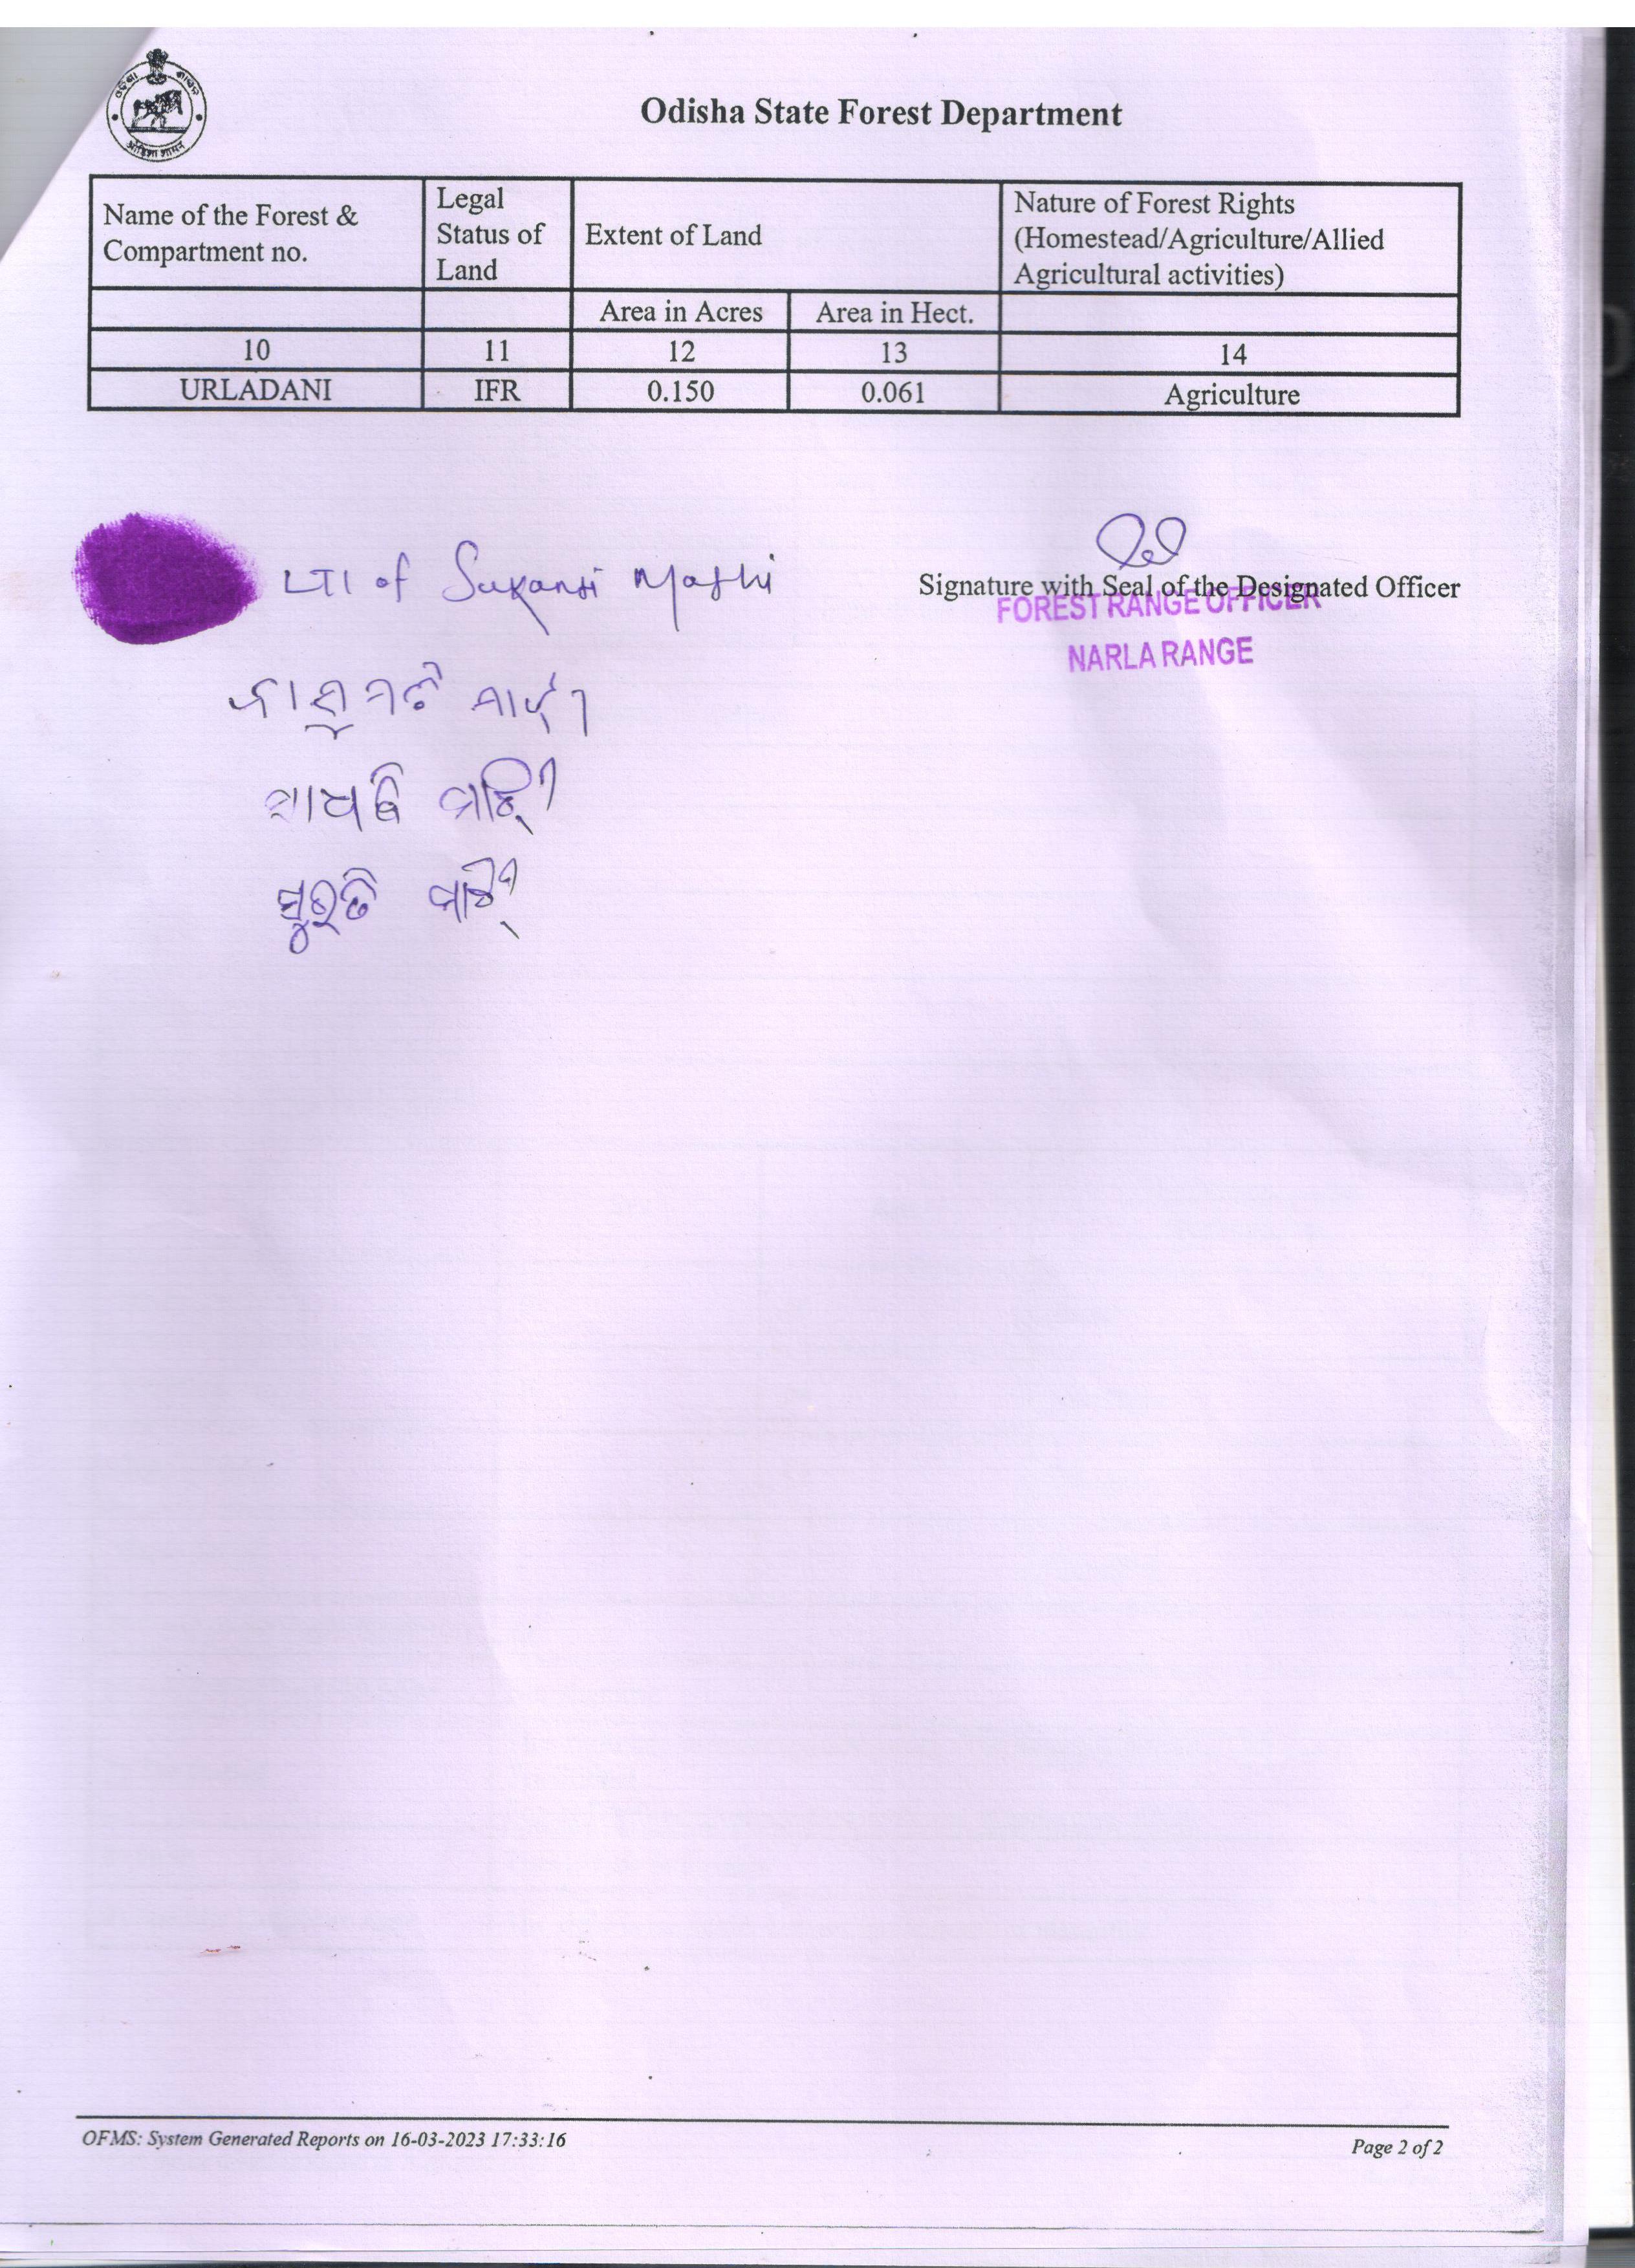 Odisha State Forest Department
Name of the Forest & Compartment no.
Legal Status of Land
Extent of Land
Nature of Forest Rights (Homestead/Agriculture/Allied Agricultural activities)
Area in Acres Area in Hect.
10 11 12 13 14
URLADANI IFR 0.150 0.061 Agriculture
LTI of Sukanti Majhi
Signature with Seal of the Designated Officer
FOREST RANGE OFFICER
NARLA RANGE
ମାଝୀ
ମାଝୀ
ମାଝୀ
OFMS: System Generated Reports on 16-03-2023 17:33:16
Page 2 of 2